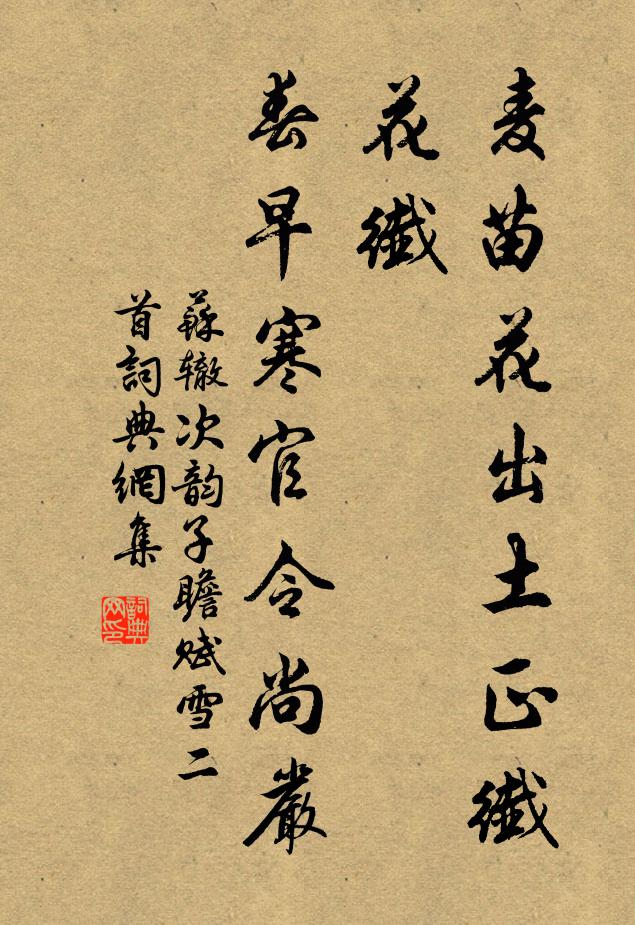 麦苗花出土正纖
花纖
春早寒官令尚嚴
蘇辙次韵子瞻赋雪二
首詞典網集
詞典
网印